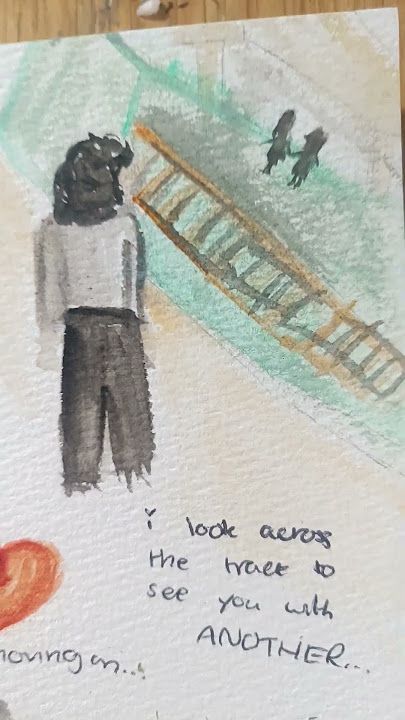 i look across
the track to
see you with
ANOTHER...
moving on...